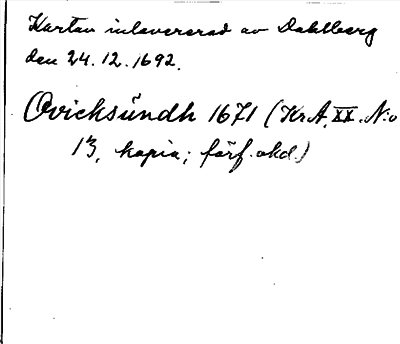 Kartan inlevererad av Dahlberg
den 24.12.1692.
Ovicksundh 1671 (Kr.A. XX. N:o
13, kopia; förf. okd.)